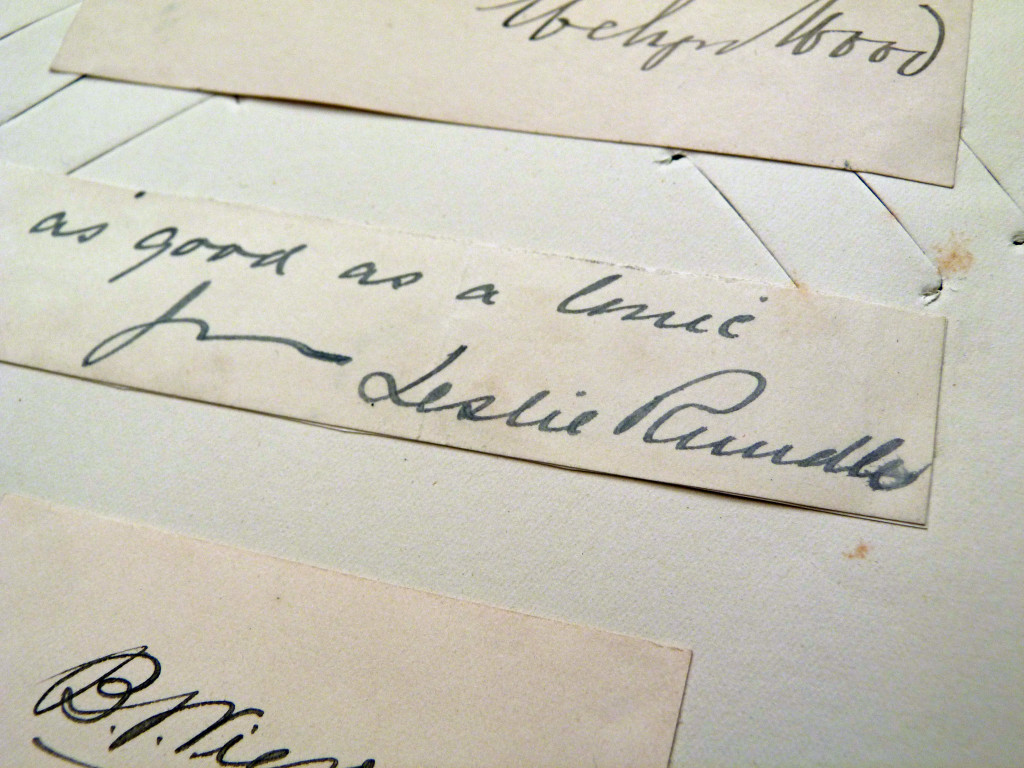 Evelyn Wood
as good as a tonic
from
Leslie Rundle
B.